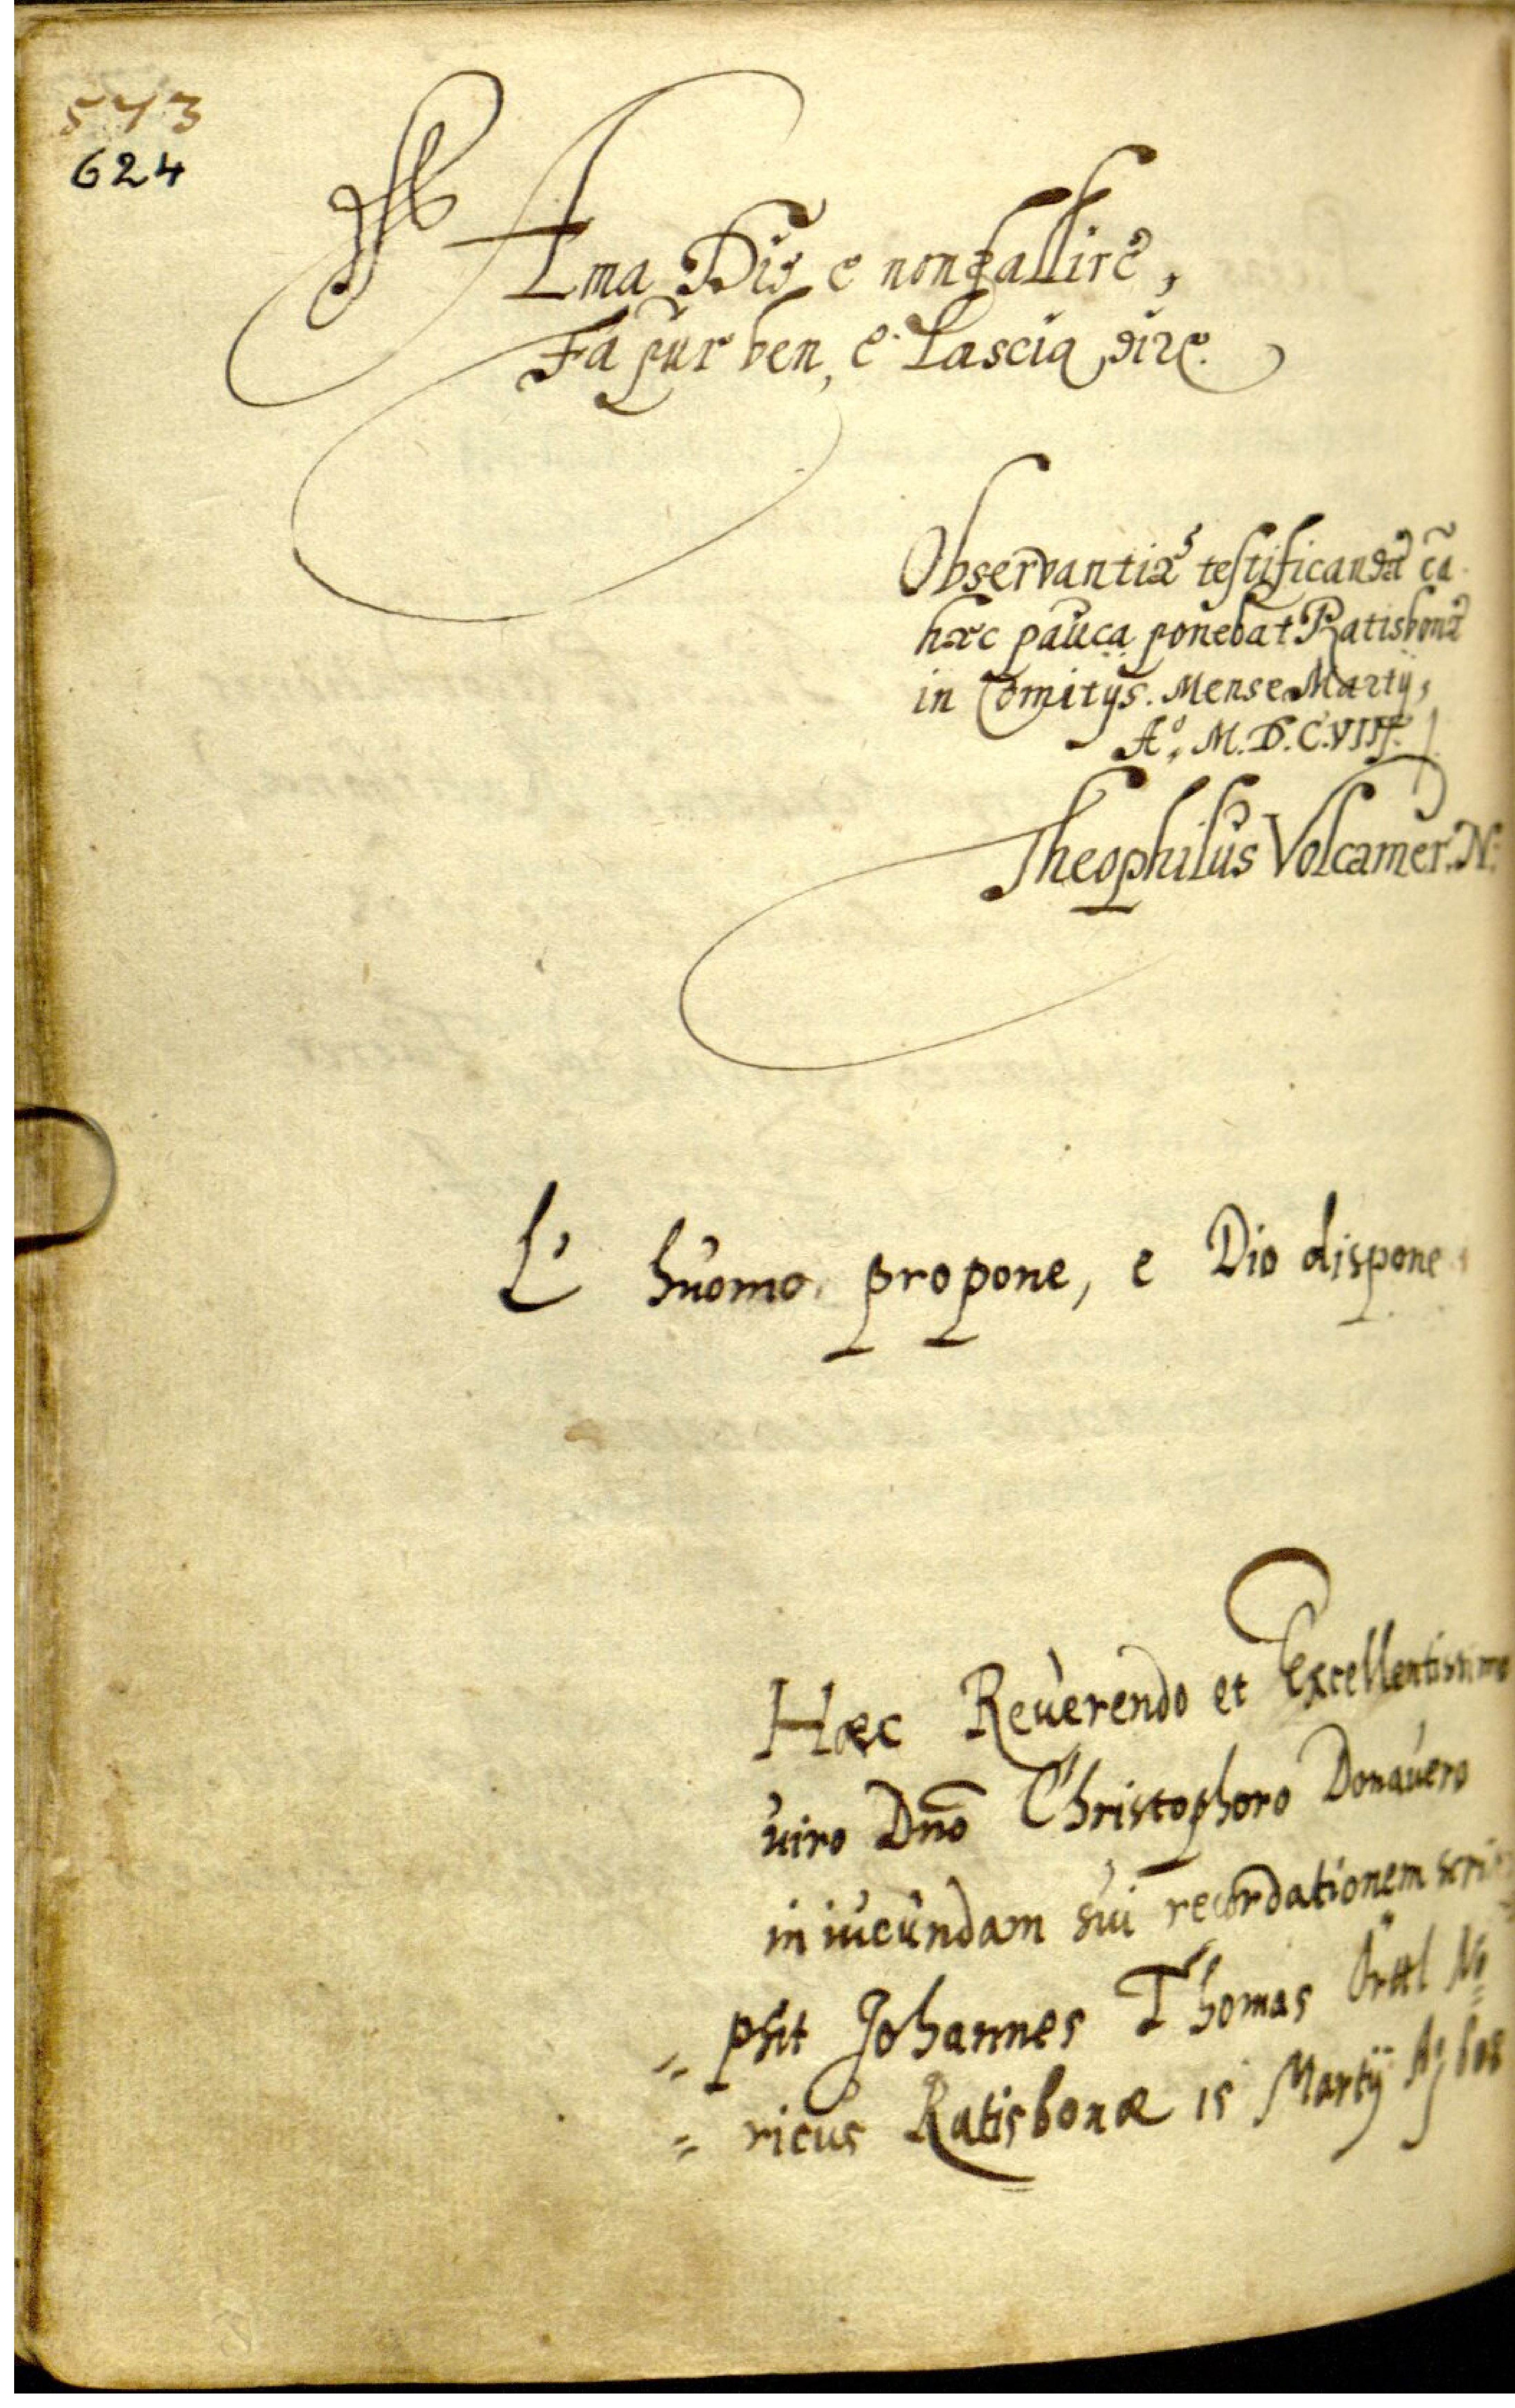 543
624
Ama Dio e non fallire,
Fa pur ben, e lascia dire.
Observantiæ testificandæ cā
hæc pauca ponebat Ratisbonæ
in Comitijs. Mense Martij,
Aº. M.D.C.VIII.
Theophilus Volcamer. N.
L' huomo propone, e Dio dispone
Hæc Reverendo et Excellentissimo
viro Dn̄o Christophoro Donavero
in iucundam sui recordationem scri=
= psit Johannes Thomas Örttl No
= ricus Ratisbonæ 15 Martij Aº 608